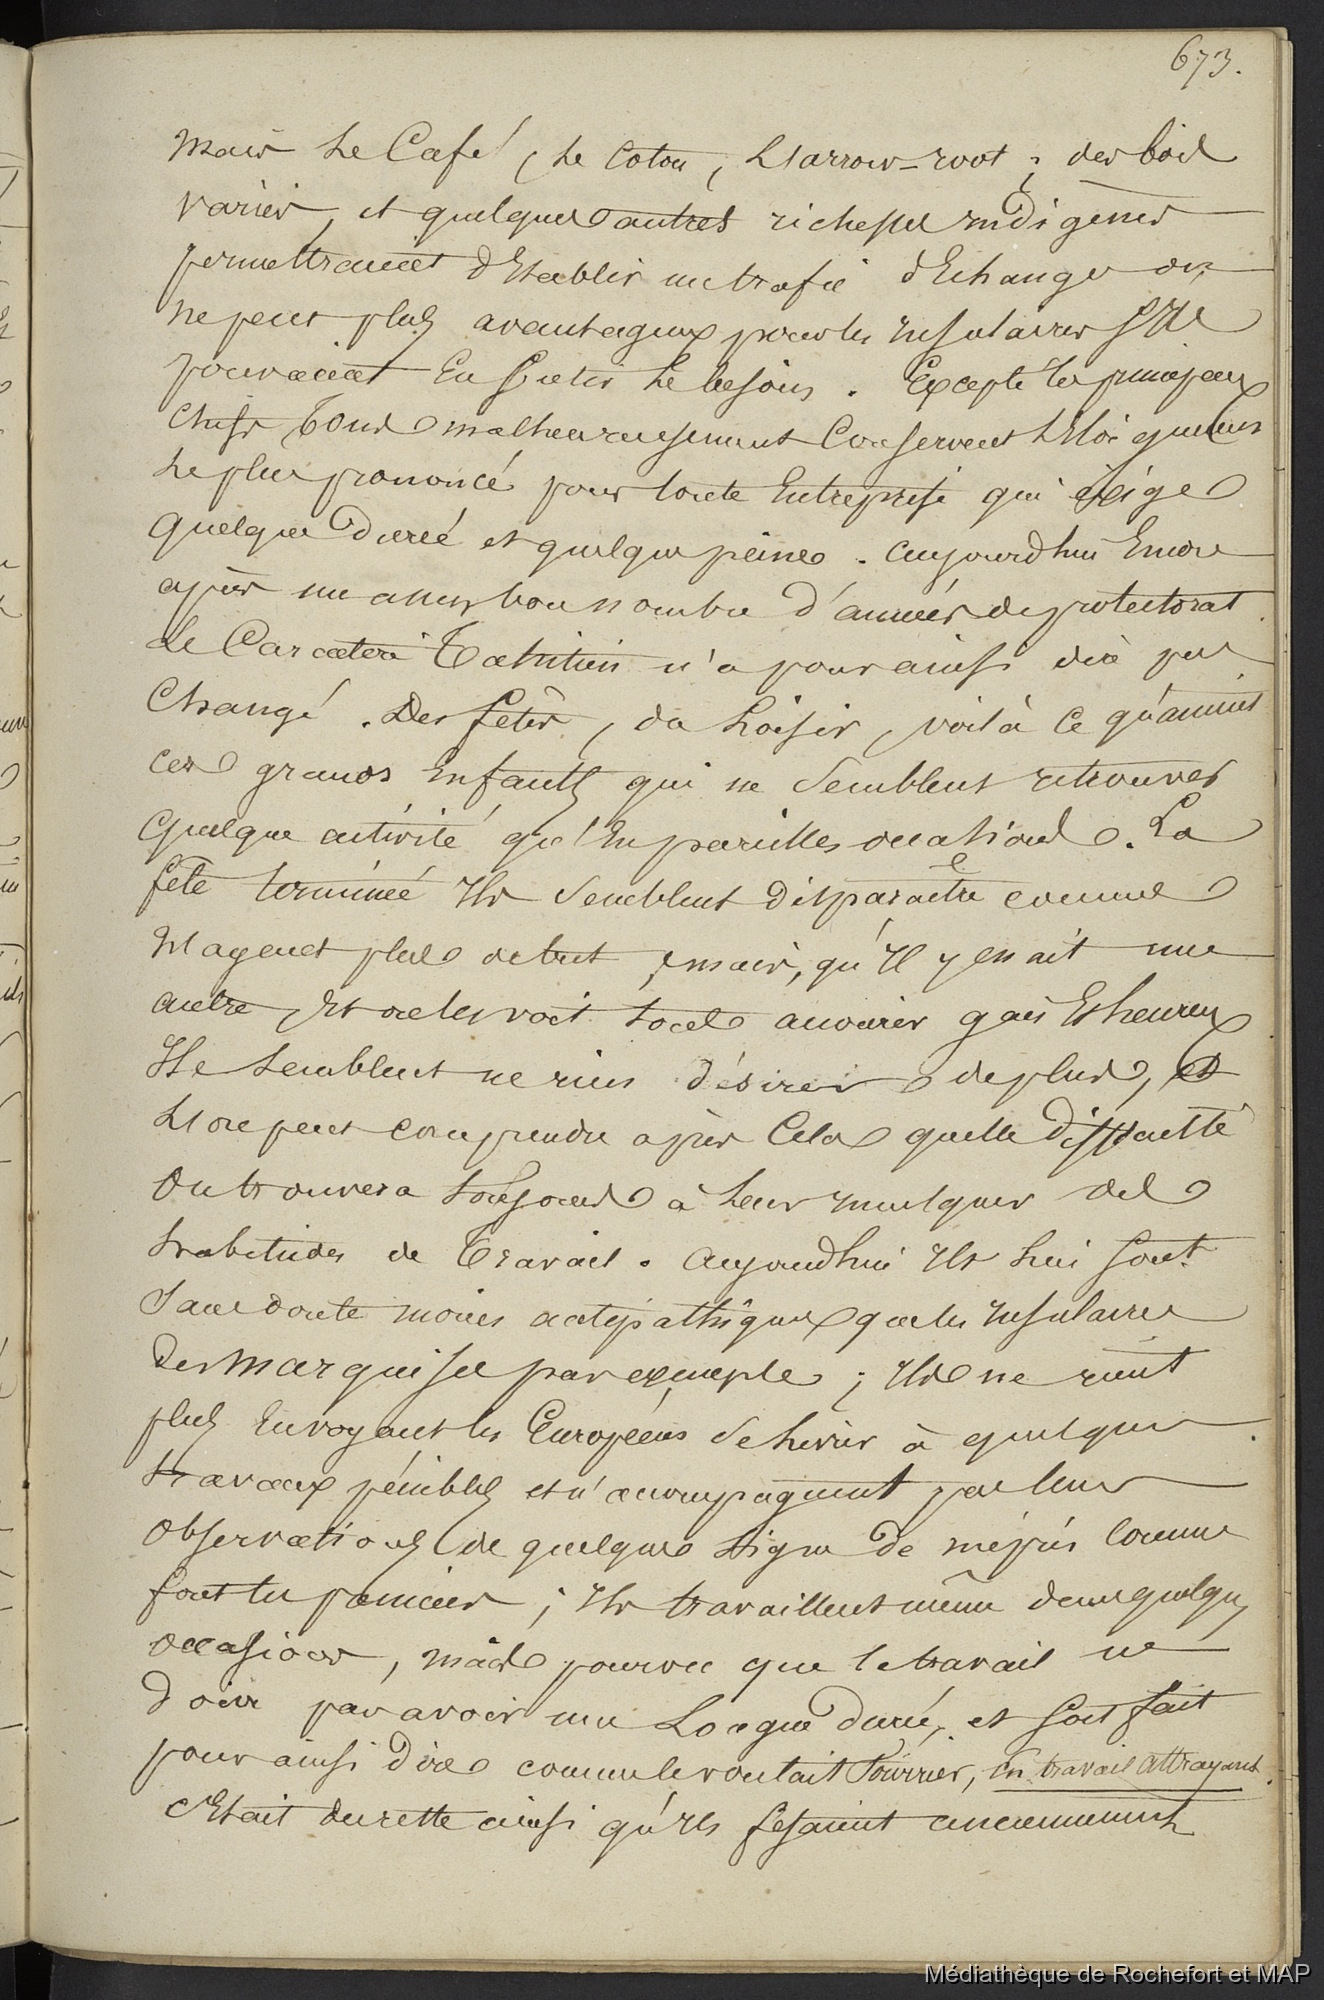 673.
Mais le Café, le Coton, l'arrow-root, des bois
variés, et quelques autres richesses indigènes
permettraient d'établir un trafic d'Echange on
ne peut plus avantageux pour les insulaires s'ils
pouvaient en sentir le besoin. Excepté les principaux
chefs tous malheureusement conservent l'éloignement
le plus prononcé pour toute entreprise qui éxige
quelque durée et quelque peine. aujourd'hui Encore
après un assez bon nombre d'années de protectorat
le Caractère Tahitien n'a pour ainsi dire pas
Changé. Des fêtes, du loisir, voilà ce qu'aiment
ces grands enfants qui ne semblent retrouver
quelque activité qu'en pareilles occasions. La
fête terminée Ils semblent disparaître comme
N'ayant plus de but, mais, qu'Il y en ait une
autre, Et on les voit tous accourir gais Et heureux
Ils semblent ne rien désirer de plus, Et
L'on peut comprendre après Cela quelle difficulté
On trouvera toujours à leur inculquer des
habitudes de Travail. Aujourd'hui Ils lui sont
Sans doute moins antipathiques que les insulaires
Des Marquises par exemple; Ils ne rient
plus En voyant les Européens se livrer à quelques
travaux pénibles et n'accompagnent pas leurs
observations de quelque signe de mépris comme
font les premiers; Ils travaillent même dans quelques
occasions, mais pourvu que le travail ne
Doive pas avoir une Longue durée, et soit fait
pour ainsi dire comme le voulait Fourrier, En travail attrayant.
C'Etait du reste ainsi qu'Ils fesaient anciennement
Médiathèque de Rochefort et MAP